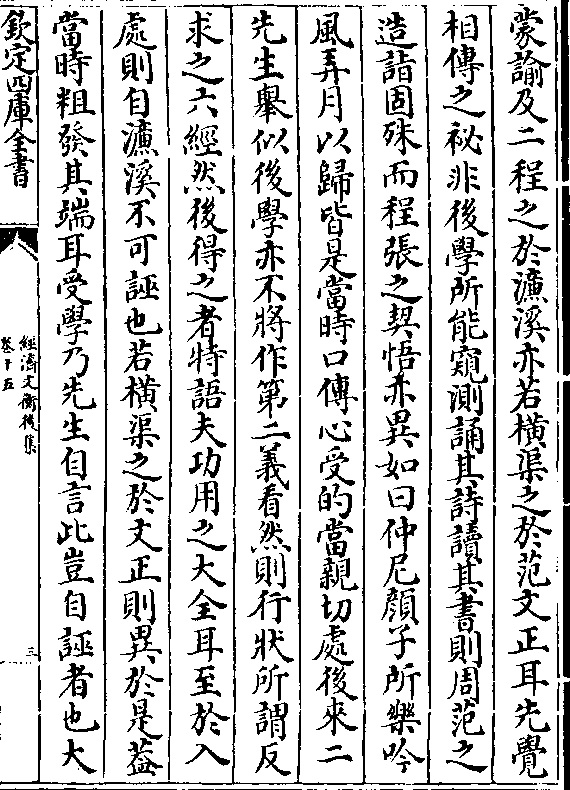 蒙諭及二程之於濓溪亦若橫渠之於范文正耳先覺
相傳之祕非後學所能窺測誦其詩讀其書則周范之
造詣固殊而程張之契悟亦異如曰仲尼顔子所樂吟
風弄月以歸皆是當時口傳心受的當親切處後來二
先生舉似後學亦不將作第二義看然則行狀所謂反
求之六經然後得之者特語夫功用之大全耳至於入
處則自濓溪不可誣也若橫渠之於文正則異於是葢
當時粗發其端耳受學乃先生自言此豈自誣者也大
欽定四庫全書
經濟文衡後集
卷十五
三